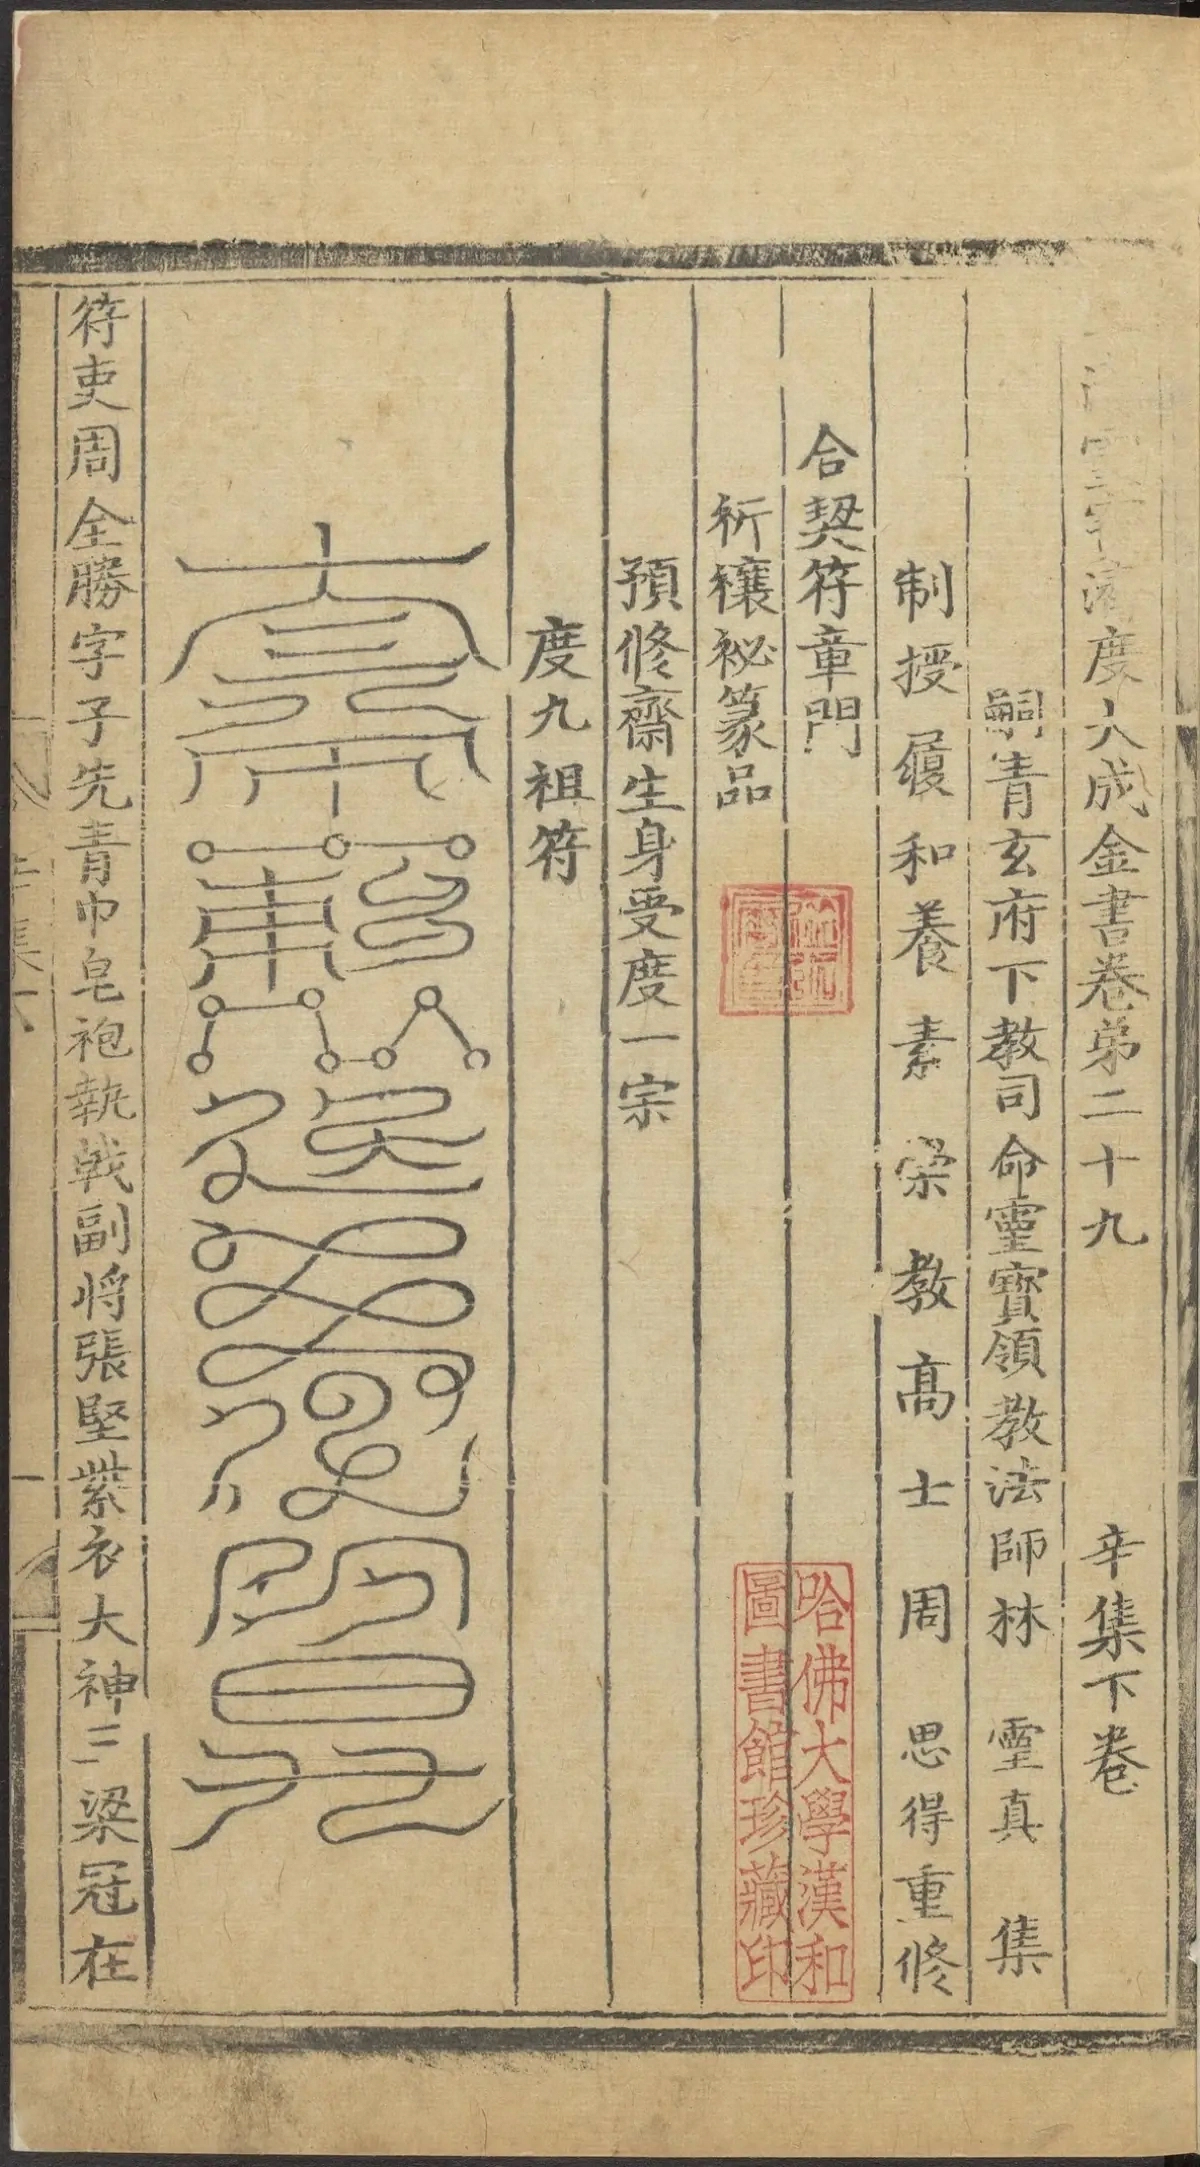 度大成金書卷第二十九 辛集下卷
嗣青玄府下教司命靈寶領教法師林 靈真 集
制授履和養素崇教高士 周 思得重修
合契符章門
祈禳祕篆品
預修齋生身受度一宗
度九祖符
符吏周全勝字子先青巾皂袍執戟副將張堅紫衣大神三梁冠在
哈佛大學漢和
圖書館珍藏印